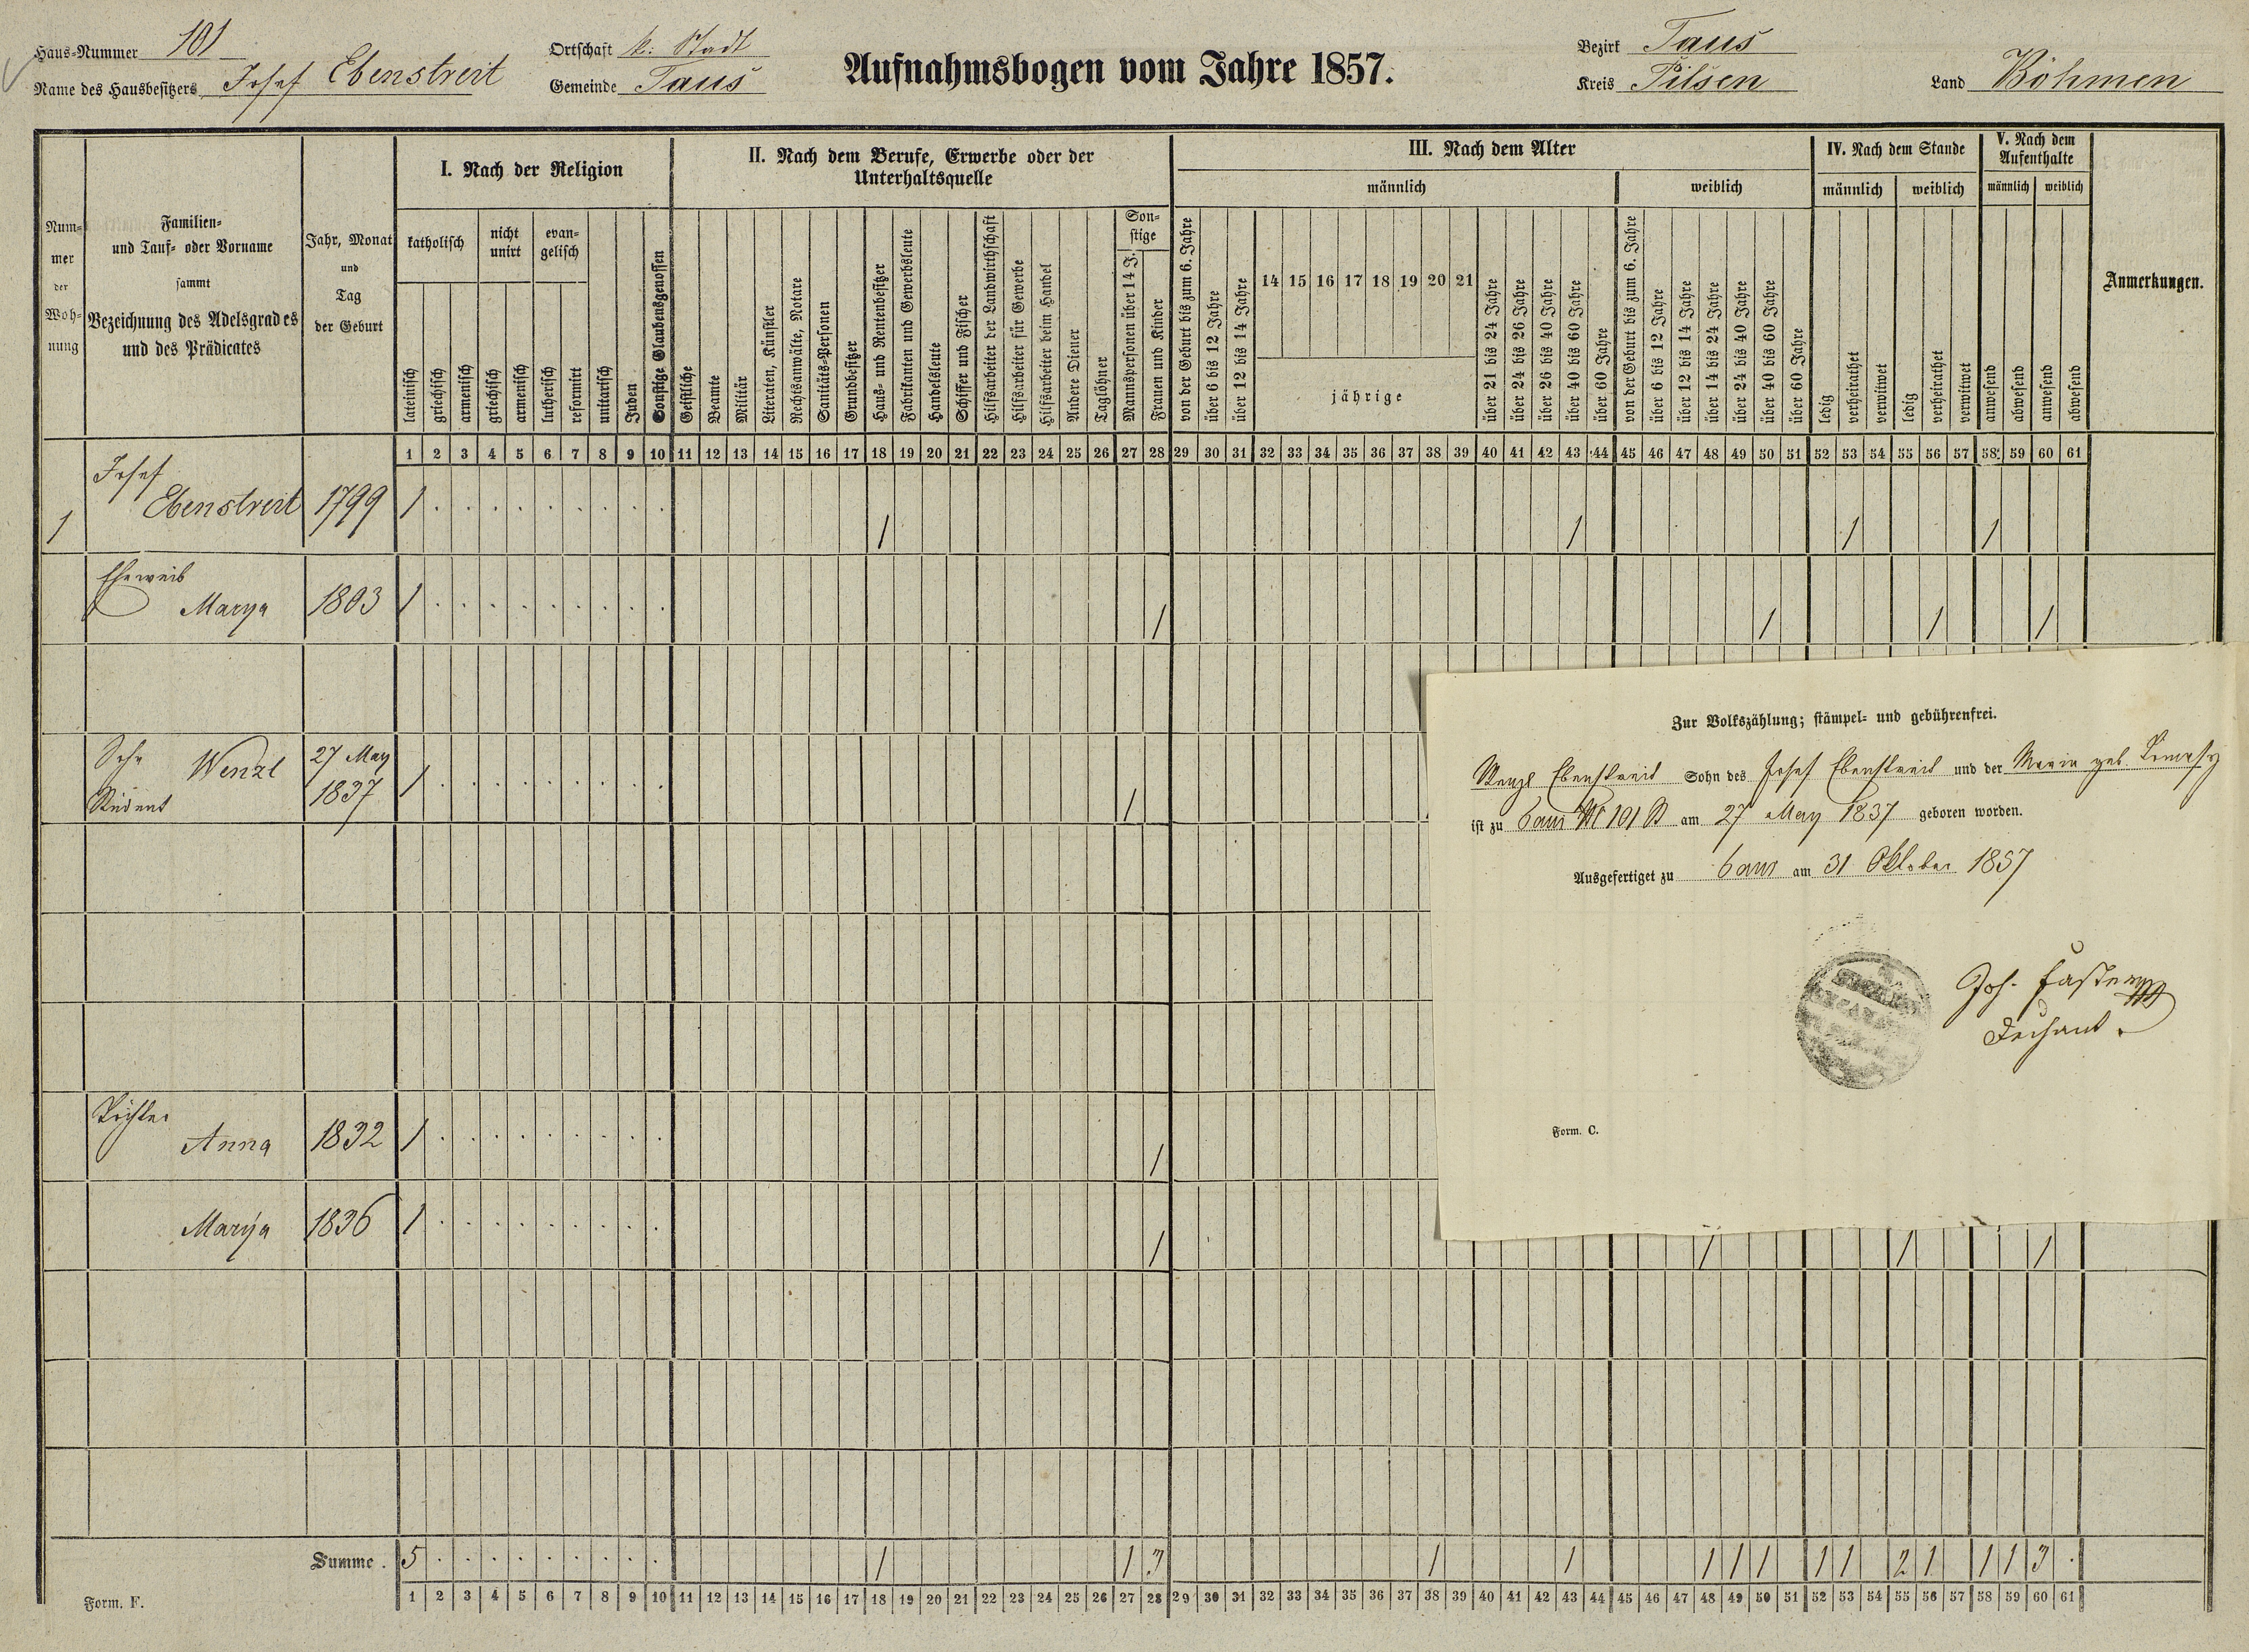 Haus-Nummer 101
Name des Hausbesitzers Josef Ebenstreit
Ortschaft k: Stadt
Gemeinde Taus
Aufnahmsbogen vom Jahre 1857.
Bezirk Taus
Kreis Pilsen
Land Böhmen
Num-
mer
der
Woh-
nung
Familien-
und Tauf- oder Vorname
sammt
Bezeichnung des Adelsgrades
und des Prädicates
Jahr, Monat
und
Tag
der Geburt
I. Nach der Religion
katholisch
nicht
unirt
evan-
gelisch
lateinisch
griechisch
armenisch
griechisch
armenisch
lutherisch
reformirt
unitarisch
Juden
Sonstige Glaubensgenossen
II. Nach dem Berufe, Erwerbe oder der
Unterhaltsquelle
Geistliche
Beamte
Militär
Literaten, Künstler
Rechtsanwälte, Notare
Sanitäts-Personen
Grundbesitzer
Haus- und Rentenbesitzer
Fabrikanten und Gewerbsleute
Handelsleute
Schiffer und Fischer
Hilfsarbeiter der Landwirthschaft
Hilfsarbeiter für Gewerbe
Hilfsarbeiter beim Handel
Andere Diener
Taglöhner
Son-
stige
Mannspersonen über 14 J.
Frauen und Kinder
III. Nach dem Alter
männlich
von der Geburt bis zum 6. Jahre
über 6 bis 12 Jahre
über 12 bis 14 Jahre
14 15 16 17 18 19 20 21
jährige
über 21 bis 24 Jahre
über 24 bis 26 Jahre
über 26 bis 40 Jahre
über 40 bis 60 Jahre
über 60 Jahre
weiblich
von der Geburt bis zum 6. Jahre
über 6 bis 12 Jahre
über 12 bis 14 Jahre
über 14 bis 24 Jahre
über 24 bis 40 Jahre
über 40 bis 60 Jahre
über 60 Jahre
IV. Nach dem Stande
männlich weiblich
ledig
verheirathet
verwitwet
ledig
verheirathet
verwitwet
V. Nach dem
Aufenthalte
männlich weiblich
anwesend
abwesend
anwesend
abwesend
Anmerkungen.
1 2 3 4 5 6 7 8 9 10 11 12 13 14 15 16 17 18 19 20 21 22 23 24 25 26 27 28 29 30 31 32 33 34 35 36 37 38 39 40 41 42 43 44 45 46 47 48 49 50 51 52 53 54 55 56 57 58 59 60 61
Josef
1 Ebenstreit 1799 1 . . . . . . . . . 1 1 1 1
Eheweib
Marya 1803 1 . . . . . . . . . 1 1 1 1
Sohn Wenzl 27 May
Student 1837 1 . . . . . . . . . 1
Töchter
Anna 1832 1 . . . . . . . . . 1
Marya 1836 1 . . . . . . . . . 1 1 1 1
Zur Volkszählung; stämpel- und gebührenfrei.
Wenzl Ebenstreit Sohn des Josef Ebenstreit und der Maria geb.
ist zu Taus Nr 101 St am 27 May 1837 geboren worden.
Ausgefertiget zu Taus am 31 Oktober 1857
Joh. Faster
Dechant.
Form. C.
Summe . 5 . . . . . . . . . 1 1 3 1 1 1 1 1 1 1 2 1 1 1 3 .
1 2 3 4 5 6 7 8 9 10 11 12 13 14 15 16 17 18 19 20 21 22 23 24 25 26 27 28 29 30 31 32 33 34 35 36 37 38 39 40 41 42 43 44 45 46 47 48 49 50 51 52 53 54 55 56 57 58 59 60 61
Form. F.